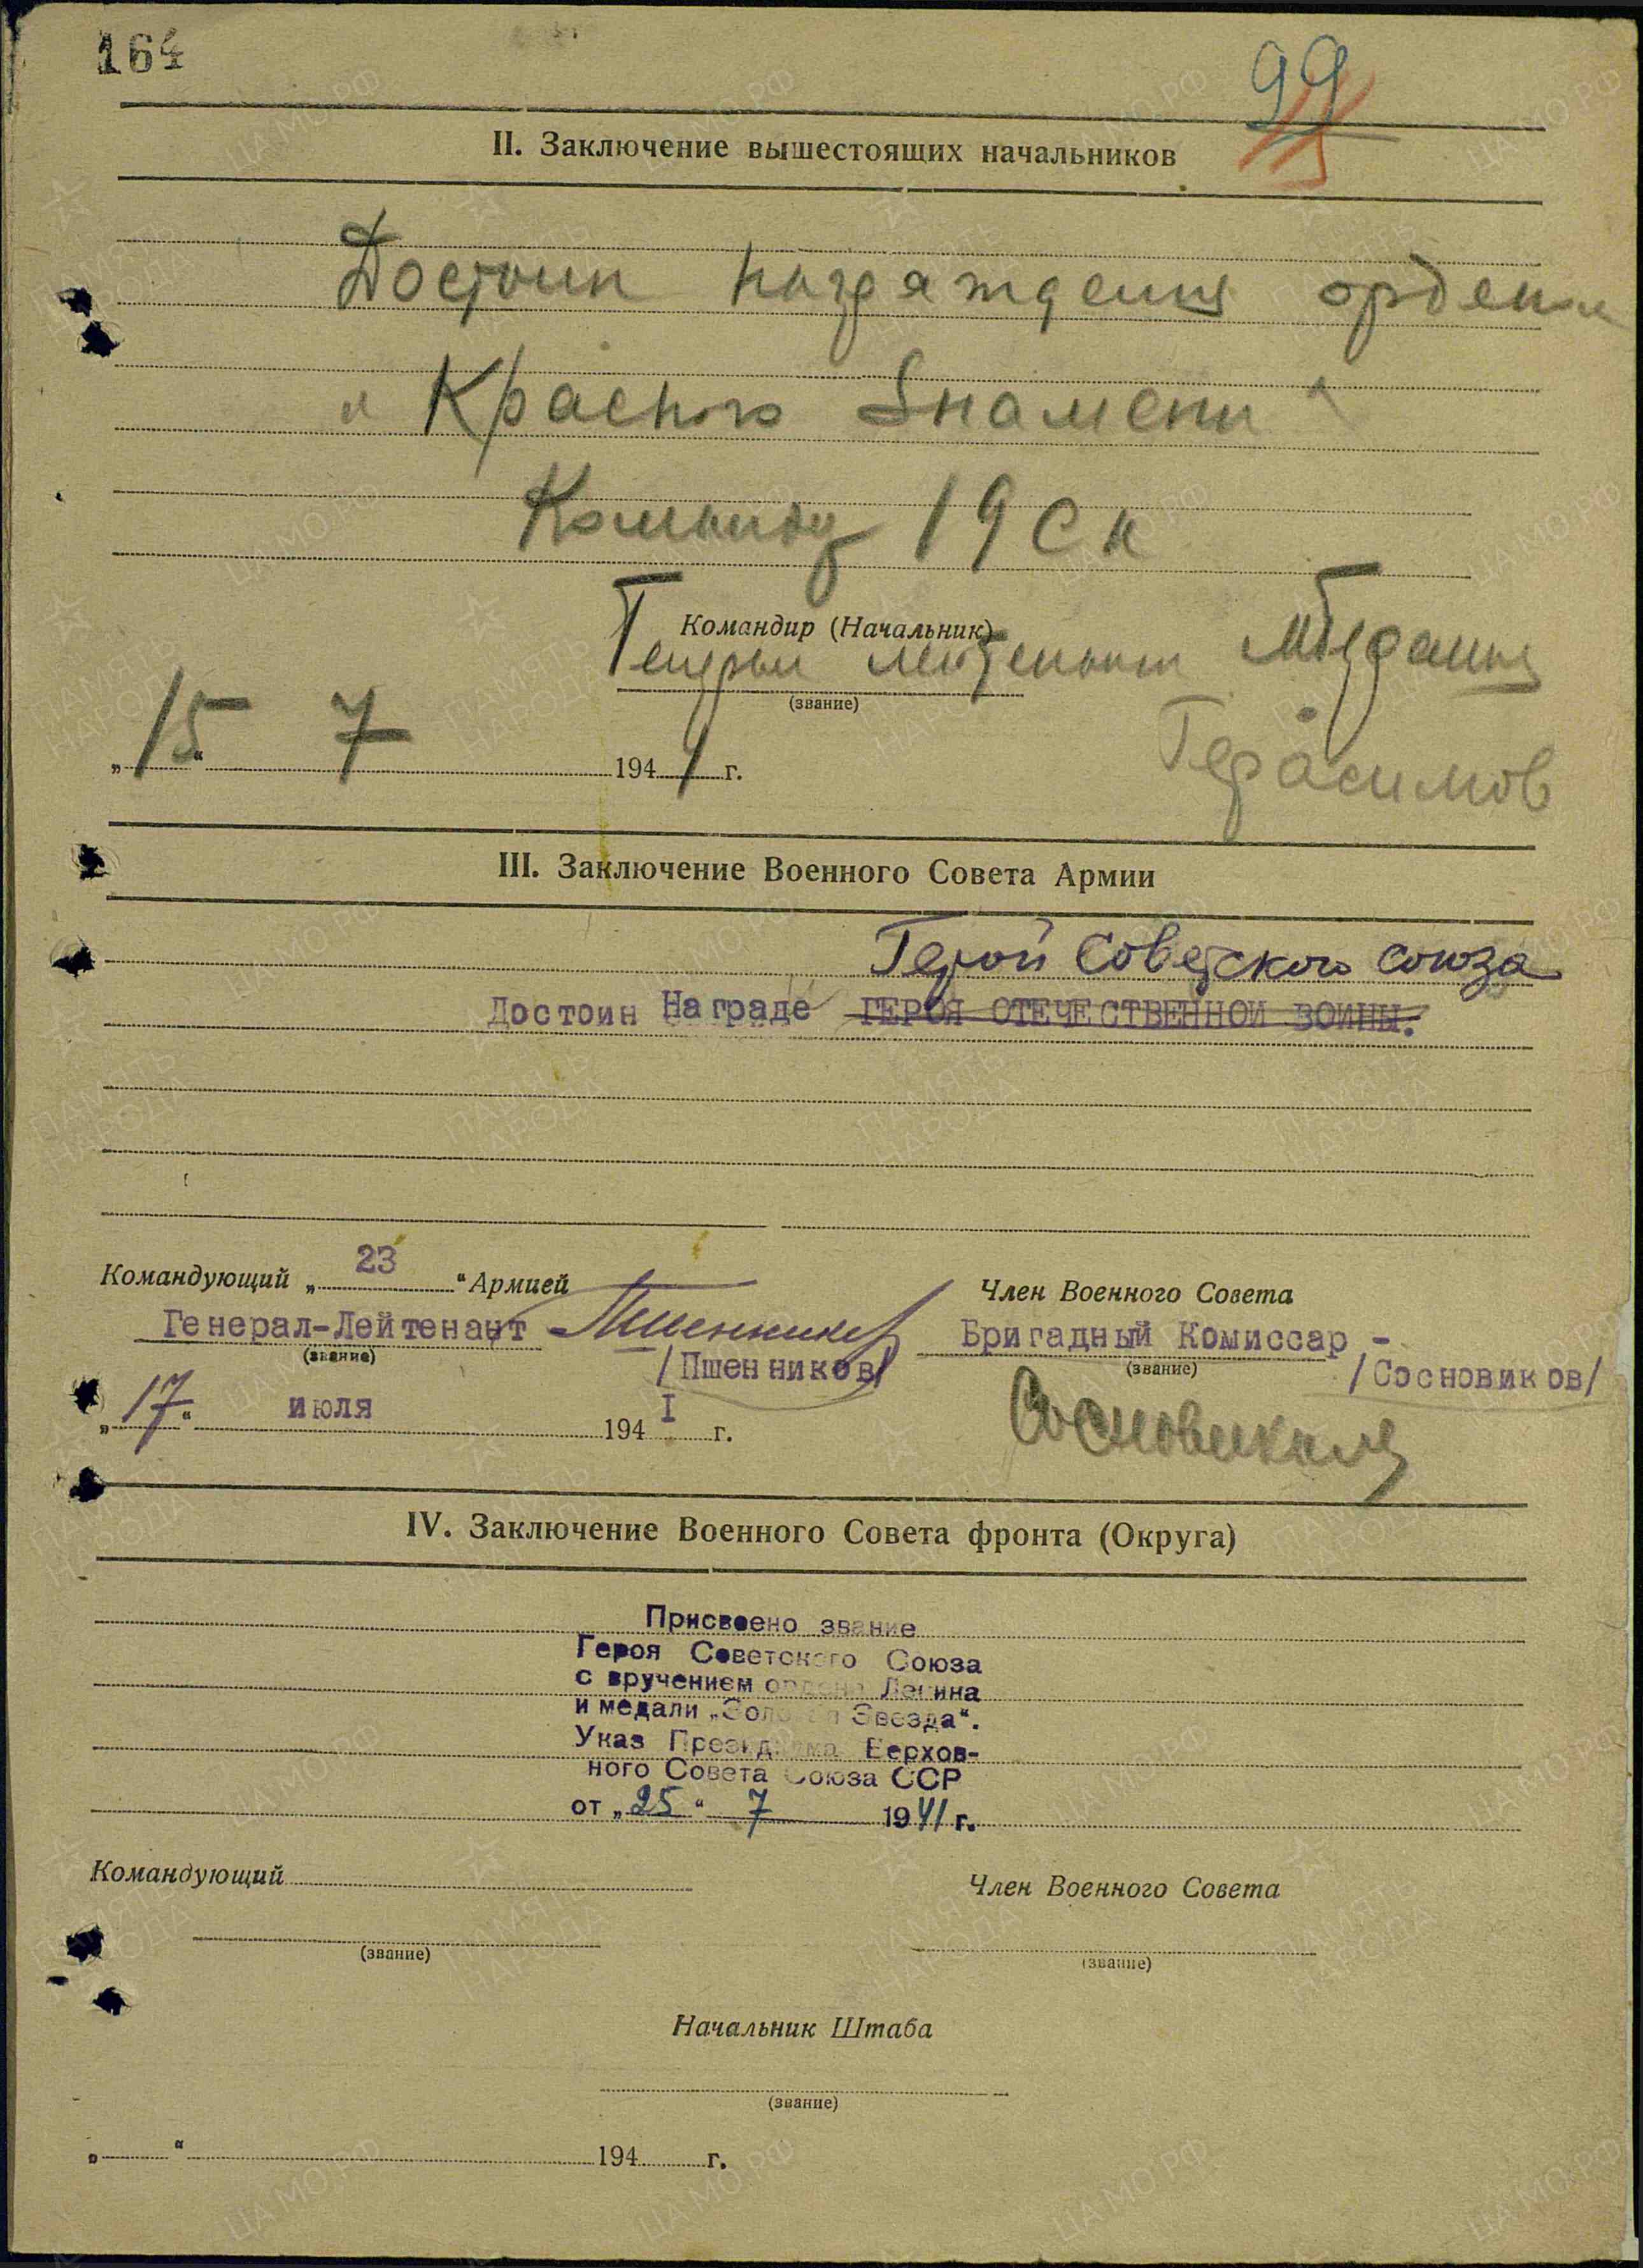 164
99
II. Заключение вышестоящих начальников
Достоин награждения ордена
„Красного Знамени“
Командир 19 СК
Командир (Начальник)
Генерал лейтенант
(звание)
Герасимов
„15“ 7 1941 г.
III. Заключение Военного Совета Армии
Герой Советского Союза
Достоин Награде ГЕРОЯ ОТЕЧЕСТВЕННОЙ ВОЙНЫ.
Командующий „23“ Армией
Член Военного Совета
Генерал-Лейтенант Пшенников
Бригадный Комиссар -
(звание)
(звание)
/Пшенников/
/Сосновиков/
„17“ июля 194I г.
Сосновиков
IV. Заключение Военного Совета фронта (Округа)
Присвоено звание
Героя Советского Союза
с вручением ордена Ленина
и медали „Золотая Звезда“.
Указ Президиума Верхов-
ного Совета Союза ССР
от „25“ 7 1941 г.
Командующий
Член Военного Совета
(звание)
(звание)
Начальник Штаба
(звание)
„ “ 194 г.